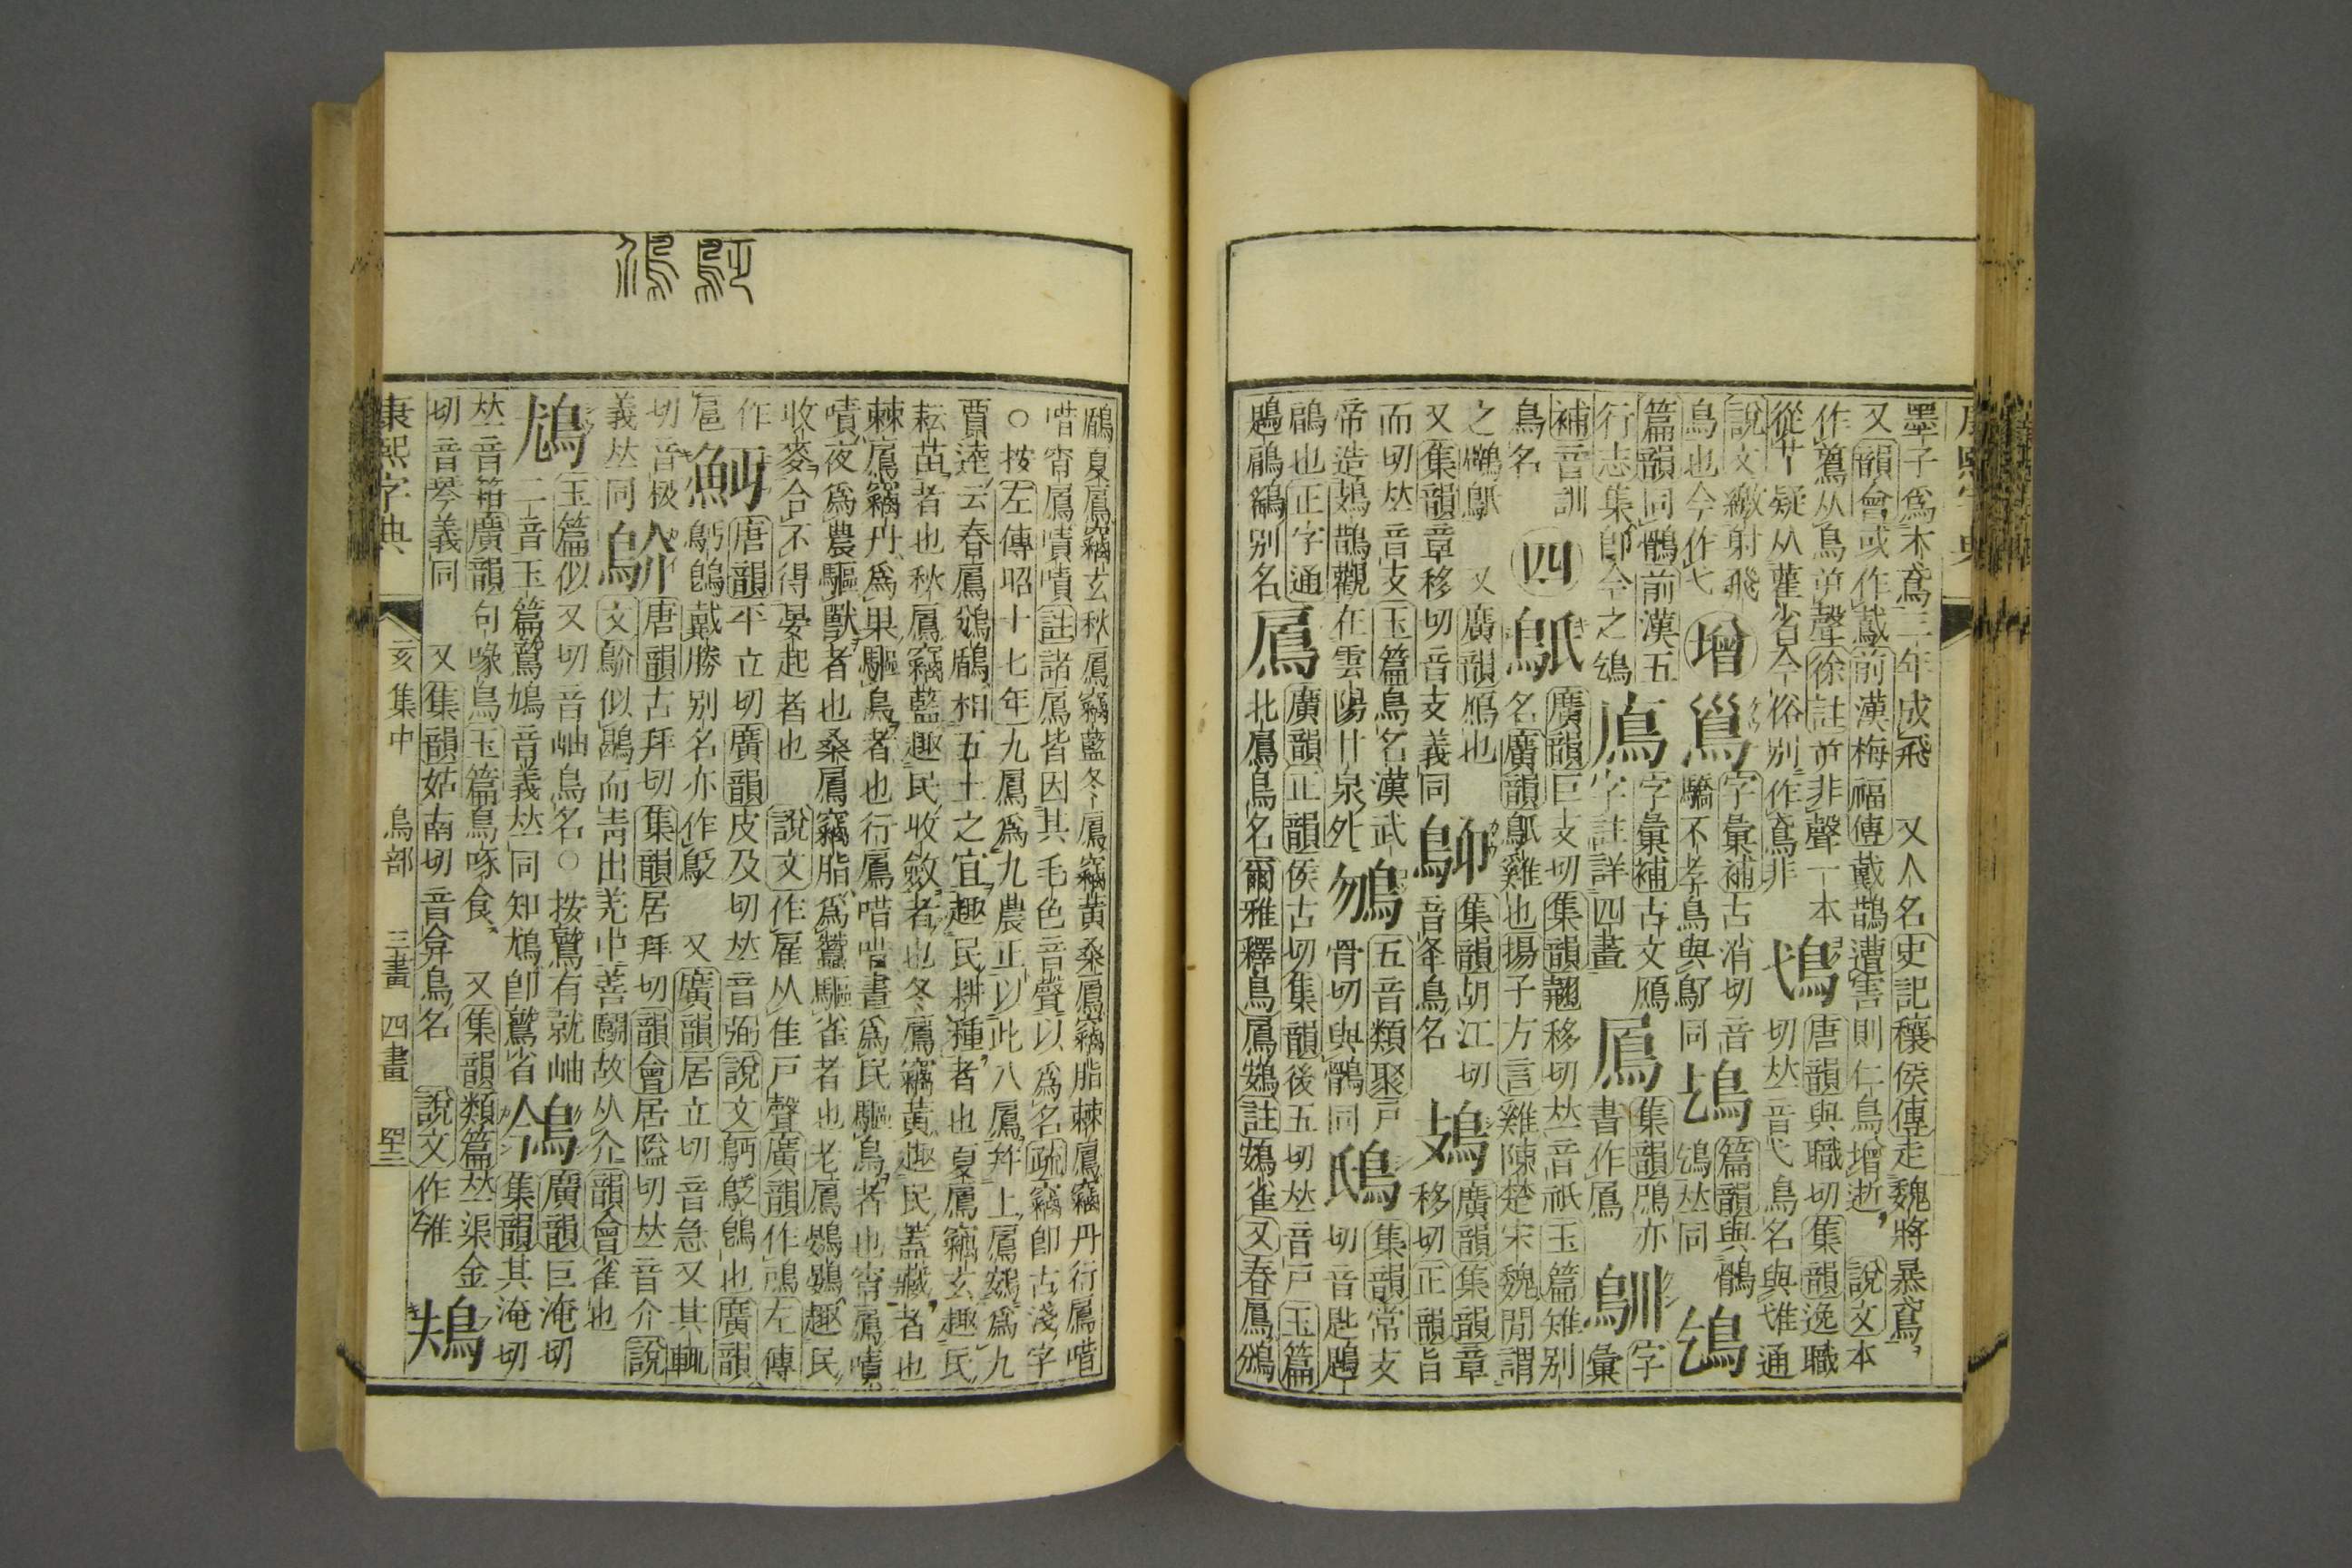 墨子爲木鳶三年成飛　又人名史記穰侯傳走魏將暴鳶
又韻會或作䳒前漢梅福傳䳒鵲遭害則仁鳥增逝　說文本
從艹疑从雚省今俗別作鳶非
鳶
唐韻與職切集韻逸職
切𠀤音弋鳥名與隿通
說文繳射飛
鳥也今作弋
增
字彙補古消切音
驕不孝鳥與鄡同
篇韻與鶻
𠀤同
篇韻同鶻前漢五
行志集卽今之
字彙補古文鴈
字註詳四畫
鳸
集韻鳲亦
書作鳸
字彙
補音訓
鳥名
四
廣韻巨支切集韻翹移切𠀤音祇玉篇雉別
名廣韻雞也揚子方言雞陳楚宋魏閒謂
又廣韻鴈也
集韻胡江切
音夅鳥名
鳷
廣韻集韻章
移切正韻旨
又集韻章移切音支義同
而切𠀤音支玉篇鳥名漢武
帝造鳷鵲觀在雲陽甘泉外
五音類聚戸
骨切與鶻同
集韻常支
切音匙
鳸
廣韻正韻侯古切集韻後五切𠀤音戸玉篇
北鳸鳥名爾雅釋鳥鳸鴳註鴳雀又春鳸鳻
鶞夏鳸竊玄秋鳸竊藍冬鳸竊黃桑鳸竊脂棘鳸竊丹行鳸唶
唶宵鳸嘖嘖註諸鳸皆因其毛色音聲以爲名疏竊卽古淺字
○按左傳昭十七年九鳸爲九農正以此八鳸幷上鳸鴳爲九
賈逵云春鳸鳻鶞相五土之宜趣民耕種者也夏鳸竊玄趣民
耘苗者也秋鳸竊藍趣民收斂者也冬鳸竊黃趣民蓋藏者也
棘鳸竊丹爲果驅鳥者也行鳸唶唶晝爲民驅鳥者也宵鳸嘖
嘖夜爲農驅獸者也桑鳸竊脂爲蠶驅雀者也老鳸鷃鷃趣民
收麥令不得晏起者也　說文作雇从隹戸聲廣韻作鳸左傳
作扈
唐韻平立切廣韻皮及切𠀤音弼說文鴔鵖也廣韻
鴔鵖戴勝別名亦作　又廣韻居立切音急又其輒
切音极
鳼
唐韻古拜切集韻居拜切韻會居隘切𠀤音介說
文鳼似鶡而靑出羌中善鬭故从介韻會雀也
義𠀤同
玉篇似又切音岫鳥名○按鷲有就岫
二音玉篇鷲音義𠀤同知卽鷲省
鳹
廣韻巨淹切
集韻其淹切
𠀤音箝廣韻句喙鳥玉篇鳥啄食　又集韻類篇𠀤渠金
切音琴義同　又集韻姑南切音弇鳥名　說文作雂
康熙字典
亥集中
鳥部
三畫
四畫